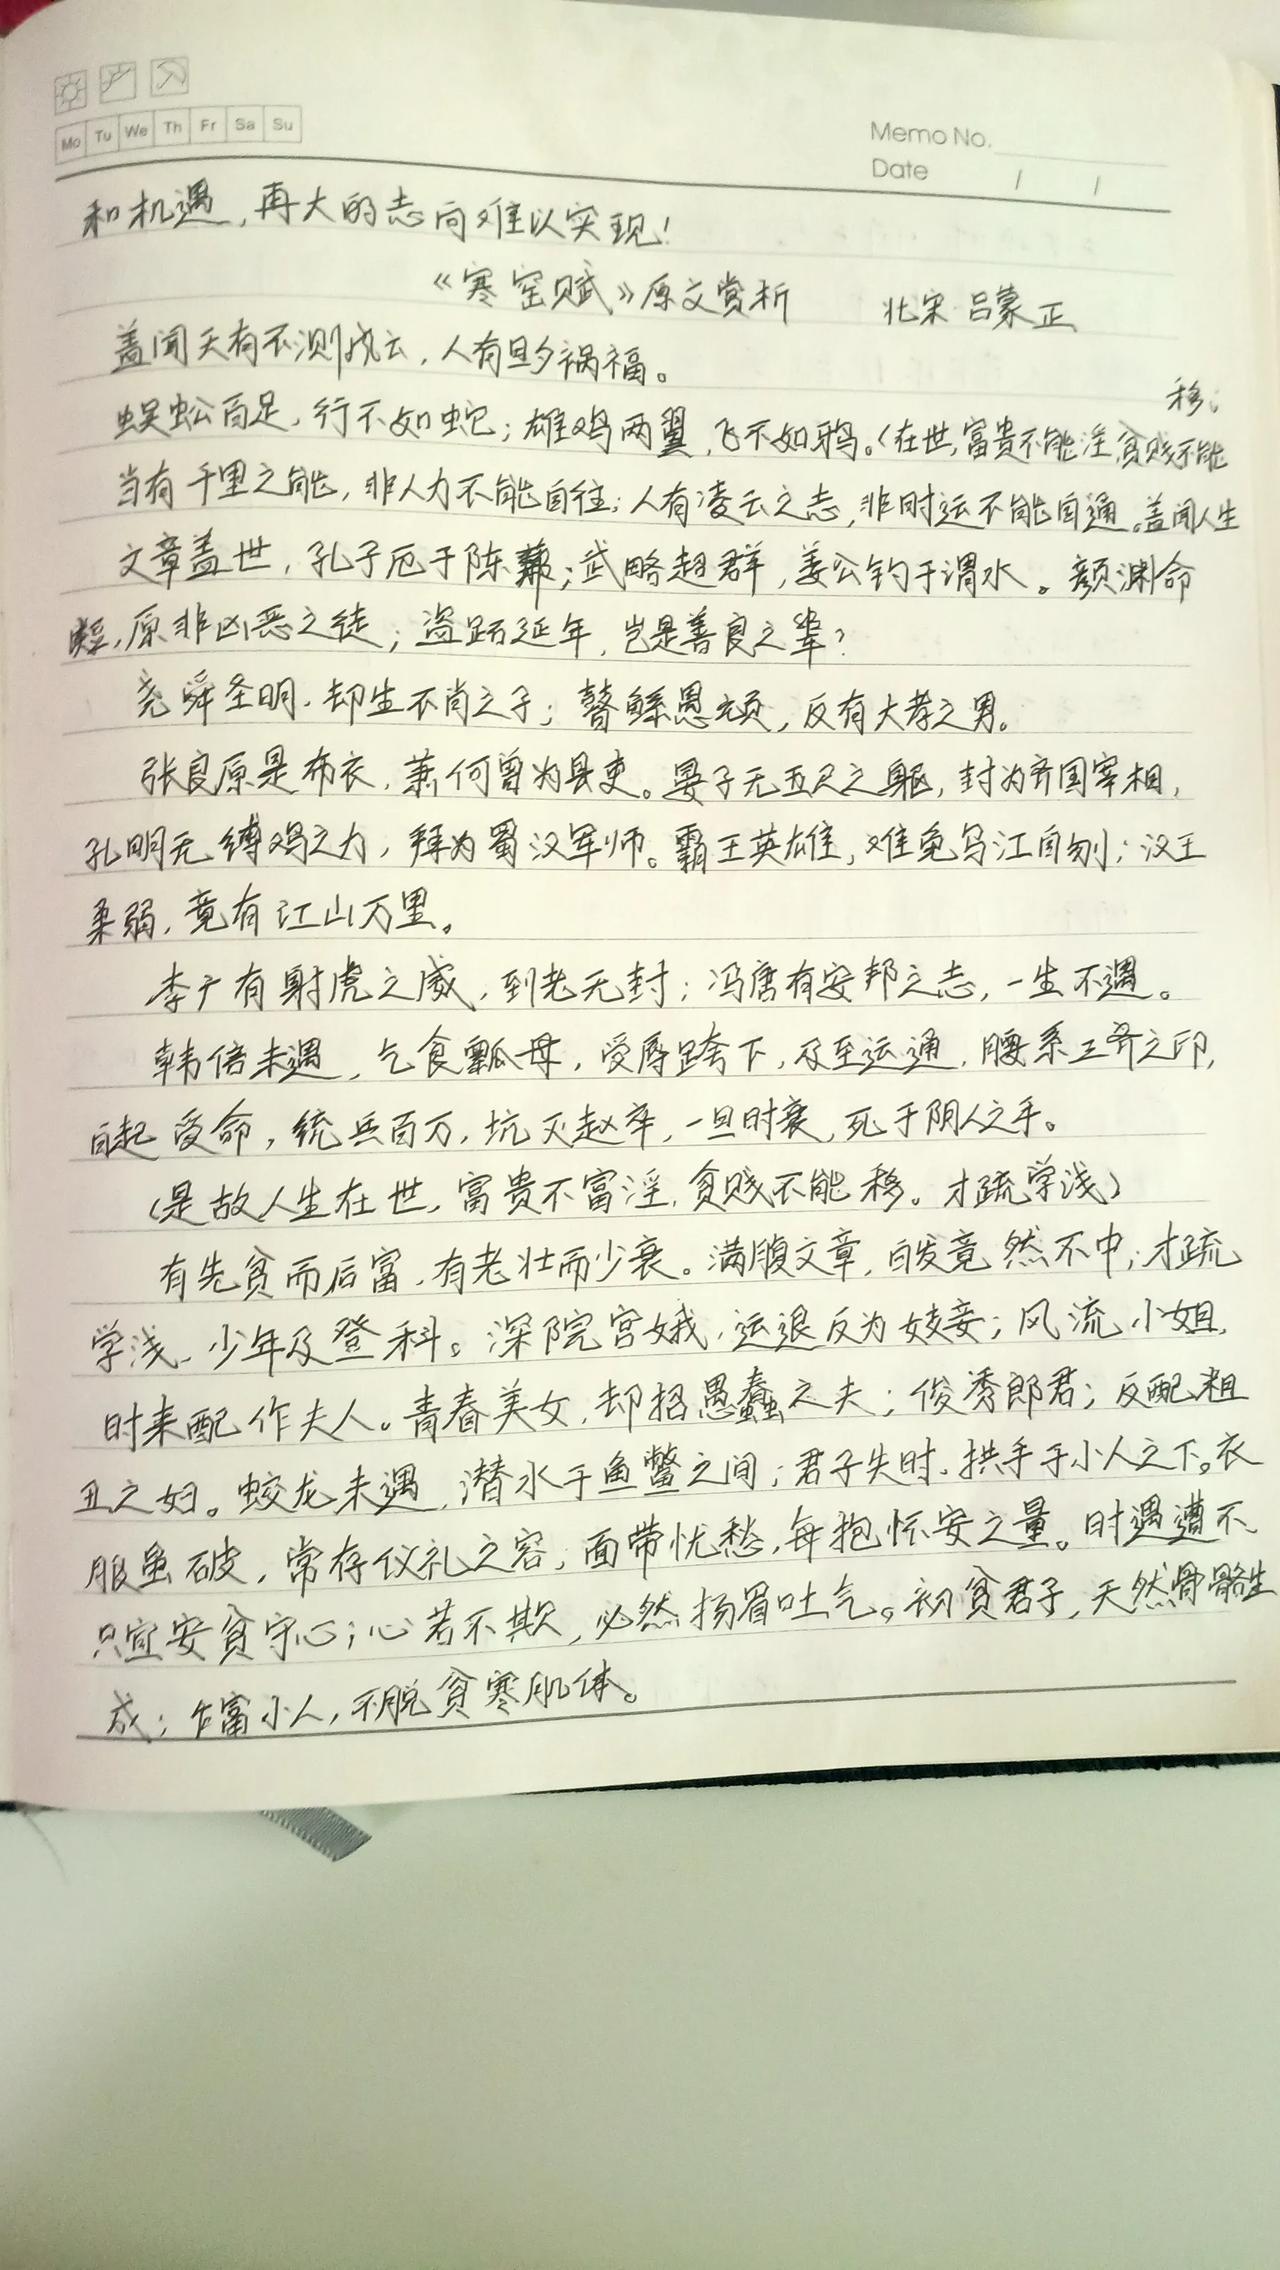 Mo Tu We Th Fr Sa Su
Memo No.
Date / /
和机遇，再大的志向难以实现！
《寒窑赋》原文赏析 北宋 吕蒙正
盖闻天有不测风云，人有旦夕祸福。
移；
蜈蚣百足，行不如蛇；雄鸡两翼，飞不如鸦。（在世，富贵不能淫，贫贱不能
当有千里之能，非人力不能自往；人有凌云之志，非时运不能自通。盖闻人生
文章盖世，孔子厄于陈蔡；武略超群，姜公钓于渭水。颜渊命
短，原非凶恶之徒；盗跖延年，岂是善良之辈？
尧舜圣明，却生不肖之子；瞽鲧愚顽，反有大孝之男。
张良原是布衣，萧何曾为县吏。晏子无五尺之躯，封为齐国宰相，
孔明无缚鸡之力，拜为蜀汉军师。霸王英雄，难免乌江自刎；汉王
柔弱，竟有江山万里。
李广有射虎之威，到老无封；冯唐有安邦之志，一生不遇。
韩信未遇，乞食瓢母，受辱跨下，及至运通，腰系三齐之印，
白起受命，统兵百万，坑灭赵卒，一旦时衰，死于阴人之手。
（是故人生在世，富贵不富淫，贫贱不能移。才疏学浅）
有先贫而后富，有老壮而少衰。满腹文章，白发竟然不中；才疏
学浅、少年及登科。深院宫娥，运退反为妓妾；风流小姐，
时来配作夫人。青春美女，却招愚蠢之夫；俊秀郎君；反配粗
丑之妇。蛟龙未遇，潜水于鱼鳖之间；君子失时、拱手于小人之下。衣
服虽破，常存仪礼之容；面带忧愁，每抱怀安之量。时遇遭不
只宜安贫守心；心若不欺，必然扬眉吐气。初贫君子，天然骨骼生
成；乍富小人，不脱贫寒肌体。